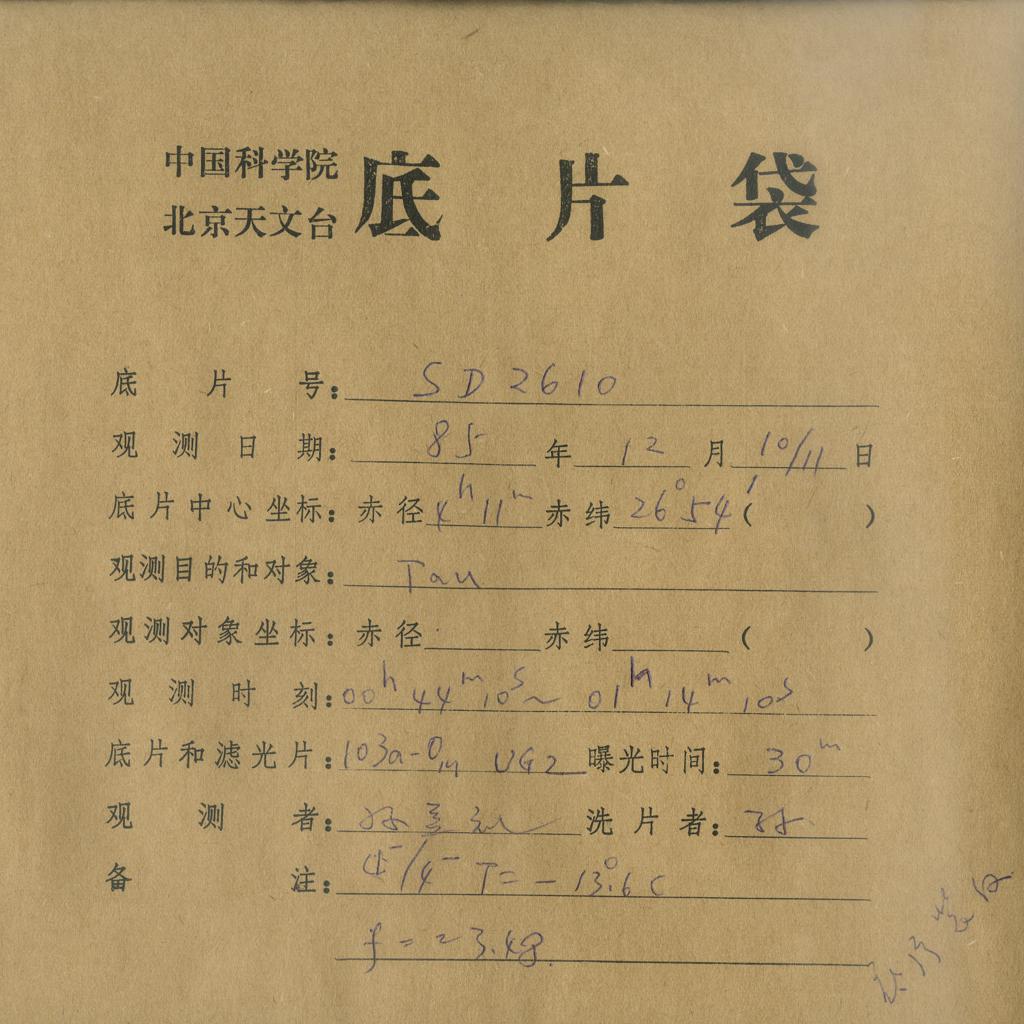 中国科学院
北京天文台 底片袋
底片号: SD2610
观测日期: 85 年 12 月 10/11 日
底片中心坐标: 赤径 4h 11m 赤纬 26°54′ ( )
观测目的和对象: Tau
观测对象坐标: 赤径 赤纬 ( )
观测时刻: 00h 44m 10s ~ 01h 14m 10s
底片和滤光片: 103a-O UG2 曝光时间: 30m
观测者: 孙 洗片者: 孙
备注: 4-/4- T= -13.°6 C
f = 23.48